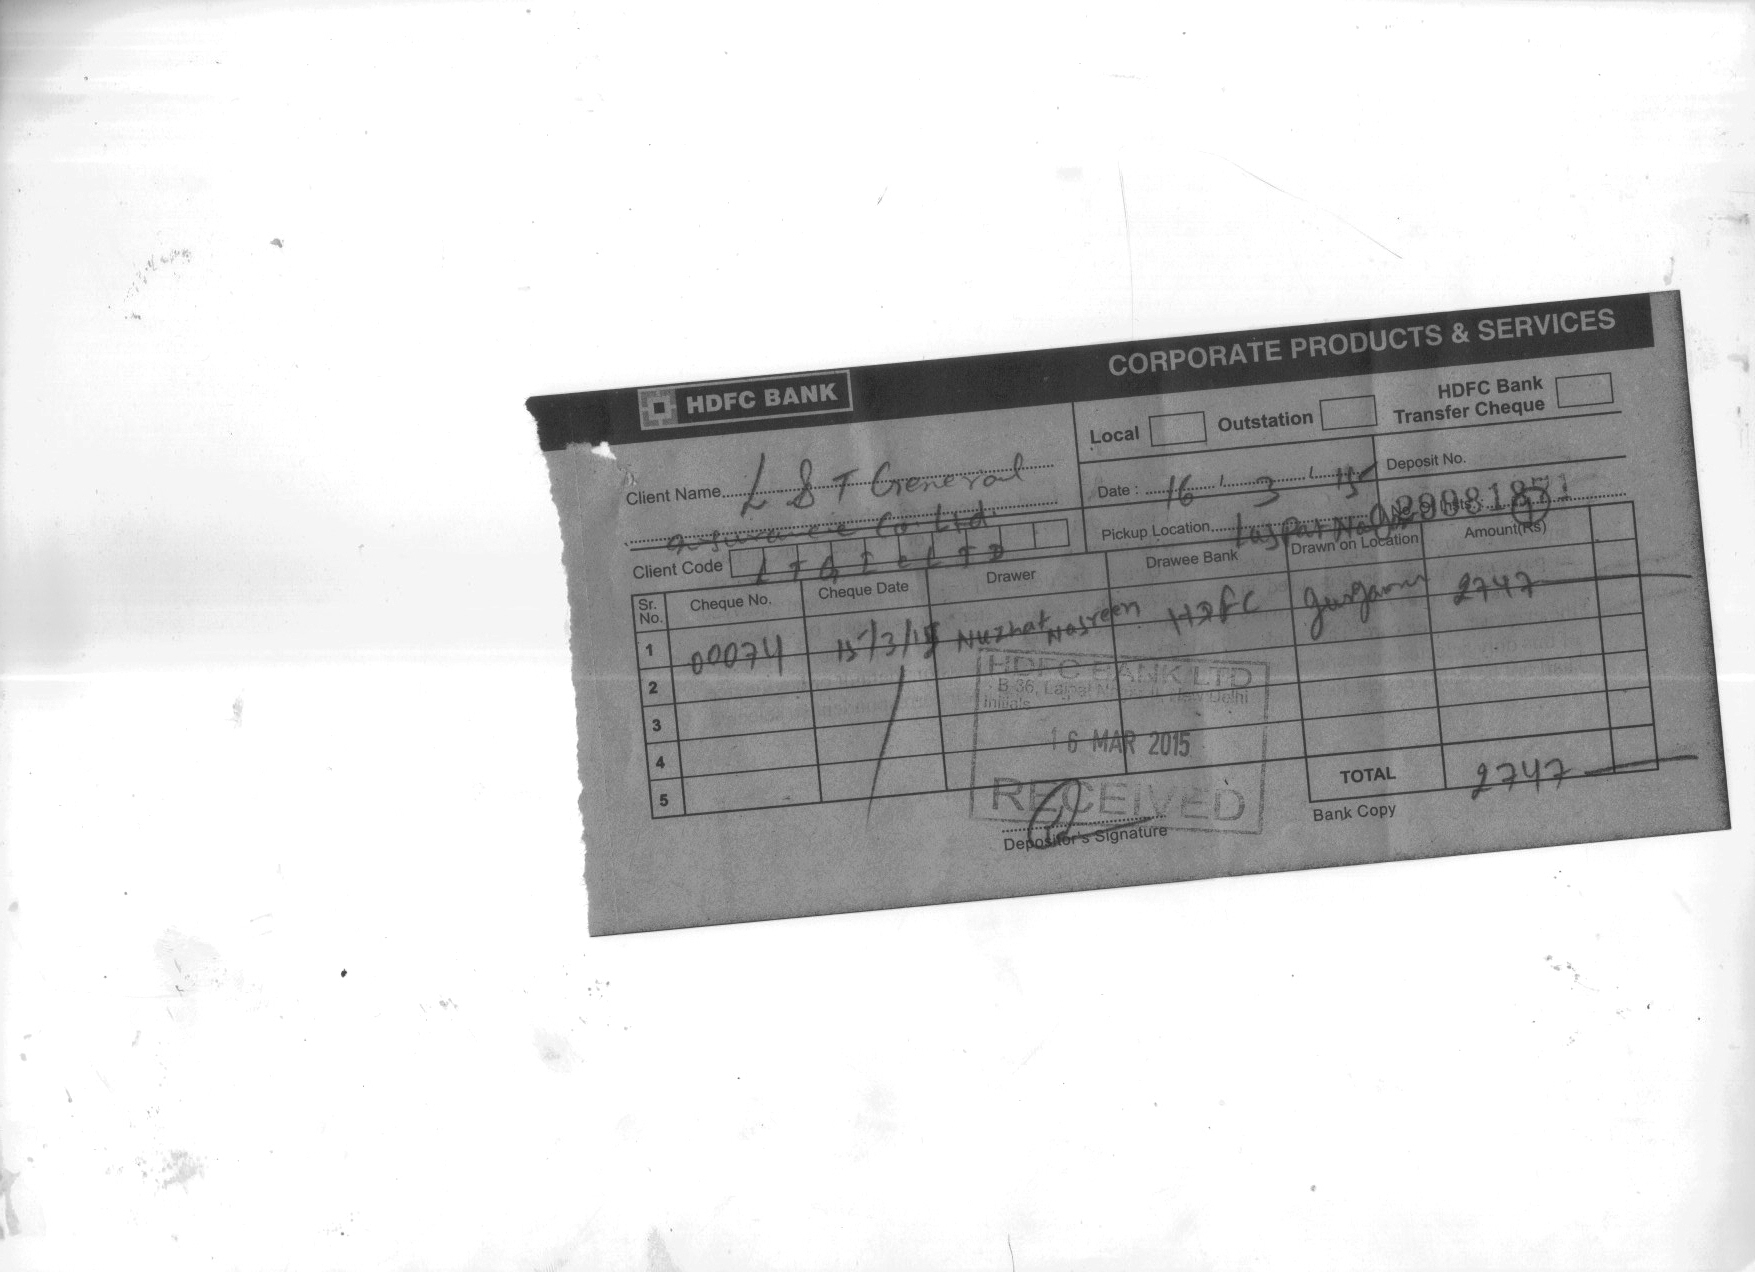 HDFC BANK
CORPORATE PRODUCTS & SERVICES
Local
Outstation
HDFC Bank
Transfer Cheque
Client Name L & T General
Insurance Co. Ltd.
Date : 16 / 3 / 15
Deposit No.
Pickup Location
Client Code L T G I C L T D
Sr. No. Cheque No. Cheque Date Drawer Drawee Bank Drawn on Location Amount(Rs)
1 00074 15/3/15 Nuzhat Nasreen HDFC Gurgaon 2747
2
3
4
5
HDFC BANK LTD
B-36, Lajpat New Delhi
Initials
16 MAR 2015
RECEIVED
TOTAL 2747
Depositor's Signature
Bank Copy